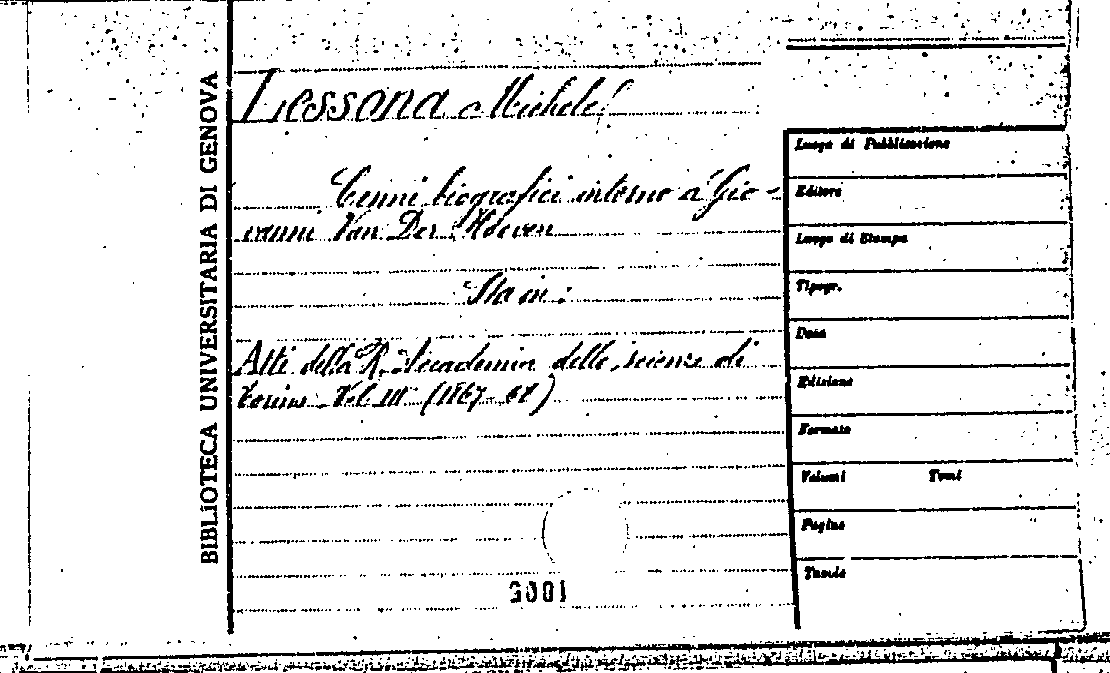 BIBLIOTECA UNIVERSITARIA DI GENOVA
Lessona Michele
Cenni biografici intorno a Gio-
vanni Van Der Hoeven
Sta in:
Atti della R. Accademia delle scienze di
Torino. Vol. III (1867-68)
Luogo di Pubblicazione
Editore
Luogo di Stampa
Tipogr.
Data
Edizione
Formato
Volumi Tomi
Pagine
Tavole